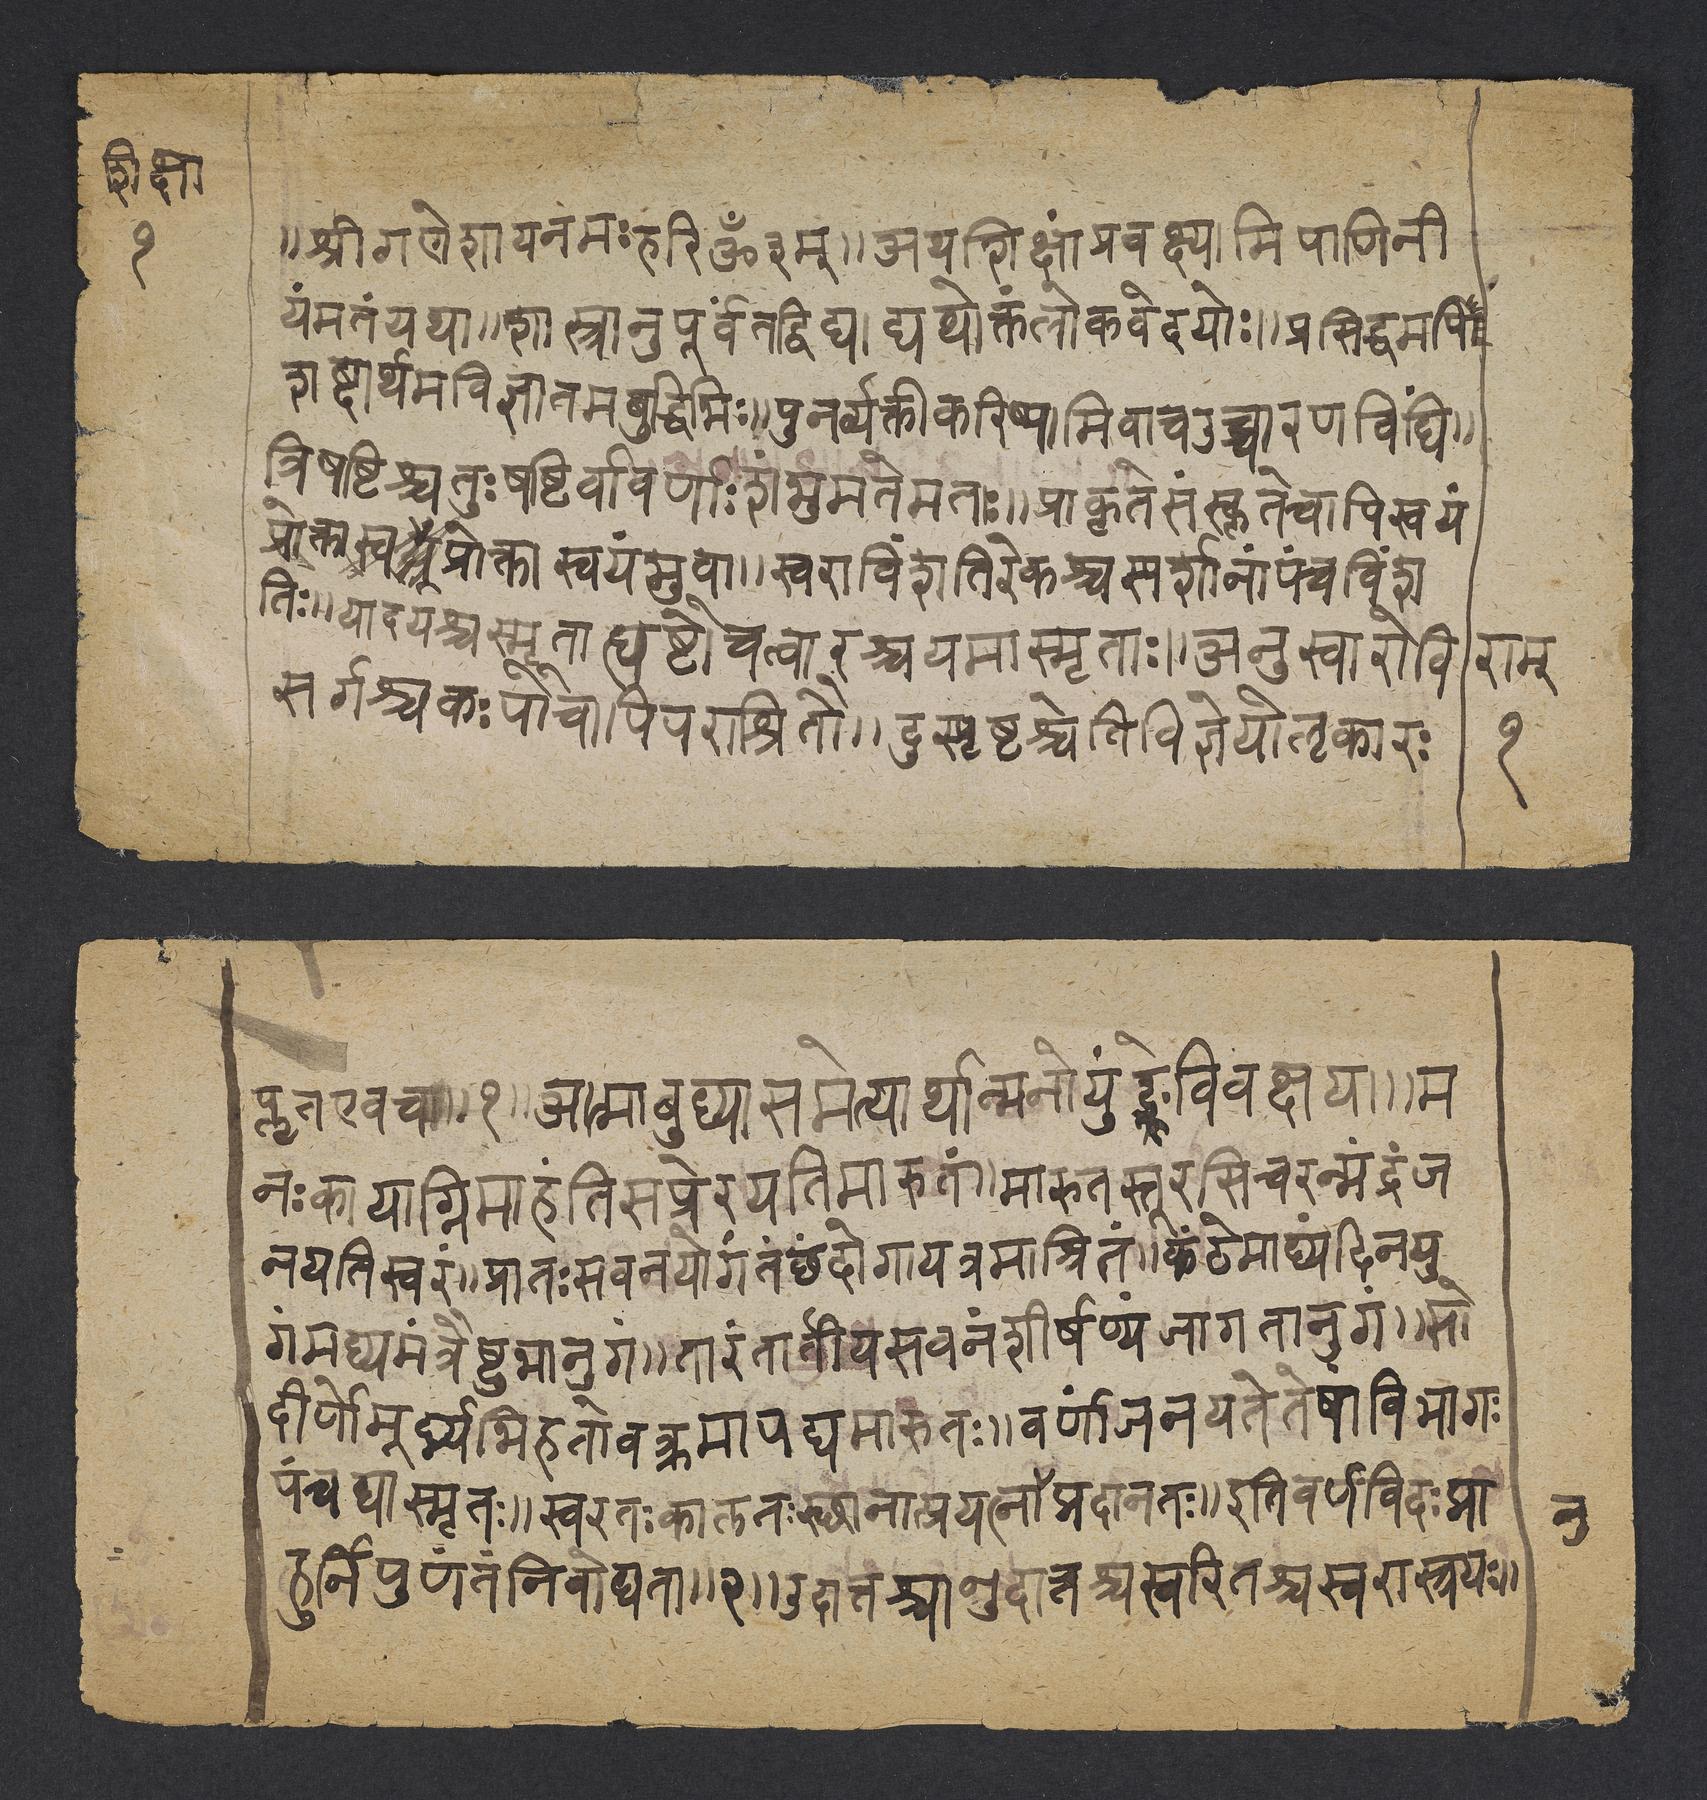 शिक्षा
१
॥श्रीगणेशायनमःहरिॐ३म्॥अथशिक्षांप्रवक्ष्यामिपाणिनी
यंमतंयथा॥शास्त्रानुपूर्वंतद्विद्याद्यथोक्तंलोकवेदयोः॥प्रसिद्धमपि
शब्दार्थमविज्ञातमबुद्धिभिः॥पुनर्व्यक्तीकरिष्यामिवाचउच्चारणविधिं॥
त्रिषष्टिश्चतुःषष्टिर्वावर्णाःशंभुमतेमताः॥प्राकृतेसंस्कृतेचापिस्वयं
प्रोक्तास्वयंप्रोक्तास्वयंभुवा॥स्वराविंशतिरेकश्चस्पर्शानांपंचविंश
तिः॥यादयश्चस्मृताह्यष्टौचत्वारश्चयमास्मृताः॥अनुस्वारोवि
सर्गश्चकःपौचापिपराश्रितौ॥दुस्पृष्टश्चेतिविज्ञेयोलृकारः
राम्
१
प्लुतएवच॥१॥आत्माबुध्यासमेत्यार्थान्मनोयुंक्तेविवक्षया॥म
नःकायाग्निमाहंतिसप्रेरयतिमारुतं॥मारुतस्तूरसिचरन्मंद्रंज
नयतिस्वरं॥प्रातःसवनयोगंतंछंदोगायत्रमाश्रितं॥कंठेमाध्यंदिनयु
गंमध्यमंत्रैष्टुभानुगं॥तारंतार्तीयसवनंशीर्षण्यंजागतानुगं॥सो
दीर्णोमूर्ध्न्यभिहतोवक्त्रमापद्यमारुतः॥वर्णाजनयतेतेषांविभागः
पंचधास्मृतः॥स्वरतःकालतःस्थानात्प्रयत्नाप्रदानतः॥इतिवर्णविदःप्रा
नु
हुर्निपुणंतंनिबोधता॥२॥उदात्तश्चानुदात्तश्चस्वरितश्चस्वरास्त्रयः॥